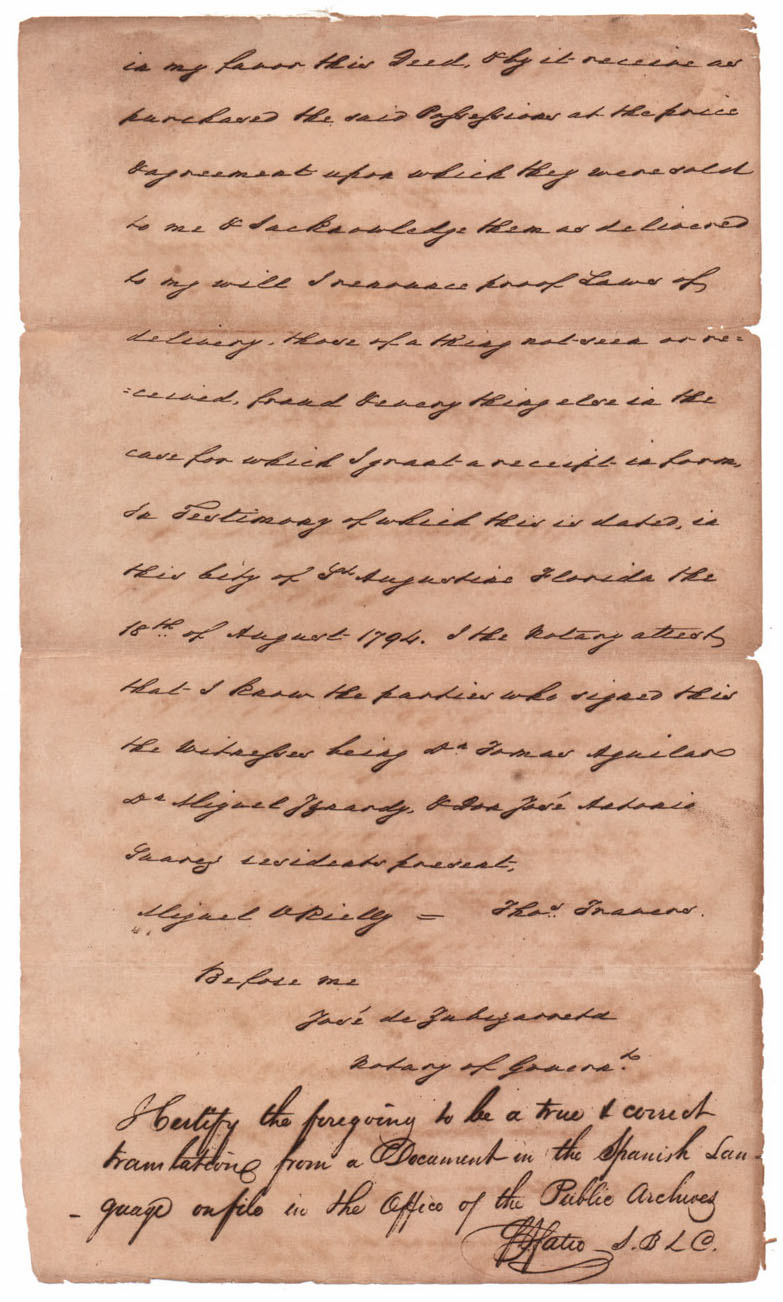 in my favor this Deed, & by it receive as
purchased the said Possessions at the price
& agreement upon which they were sold
to me & I acknowledge them as delivered
to my will I renounce proof Laws of
delivery, those of a thing not seen or re=
=ceived, fraud & every thing else in the
case for which I grant a receipt in form,
In Testimony of which this is dated, in
this City of St Augustine Florida the
18th of August 1794. I the Notary attest
that I know the parties who signed this
the Witnesses being Dn Tomas Aguilar
Dn Miguel Iznardy, & Don José Antonio
Suarez residents present,
Miguel O Reilly = Thos Travers.
Before me
José de Zubizarreta
Notary of Governt.
I Certify the foregoing to be a true & correct
translation from a Document in the Spanish Lan-
- guage on file in the Office of the Public Archives
Fatio S. B L C.